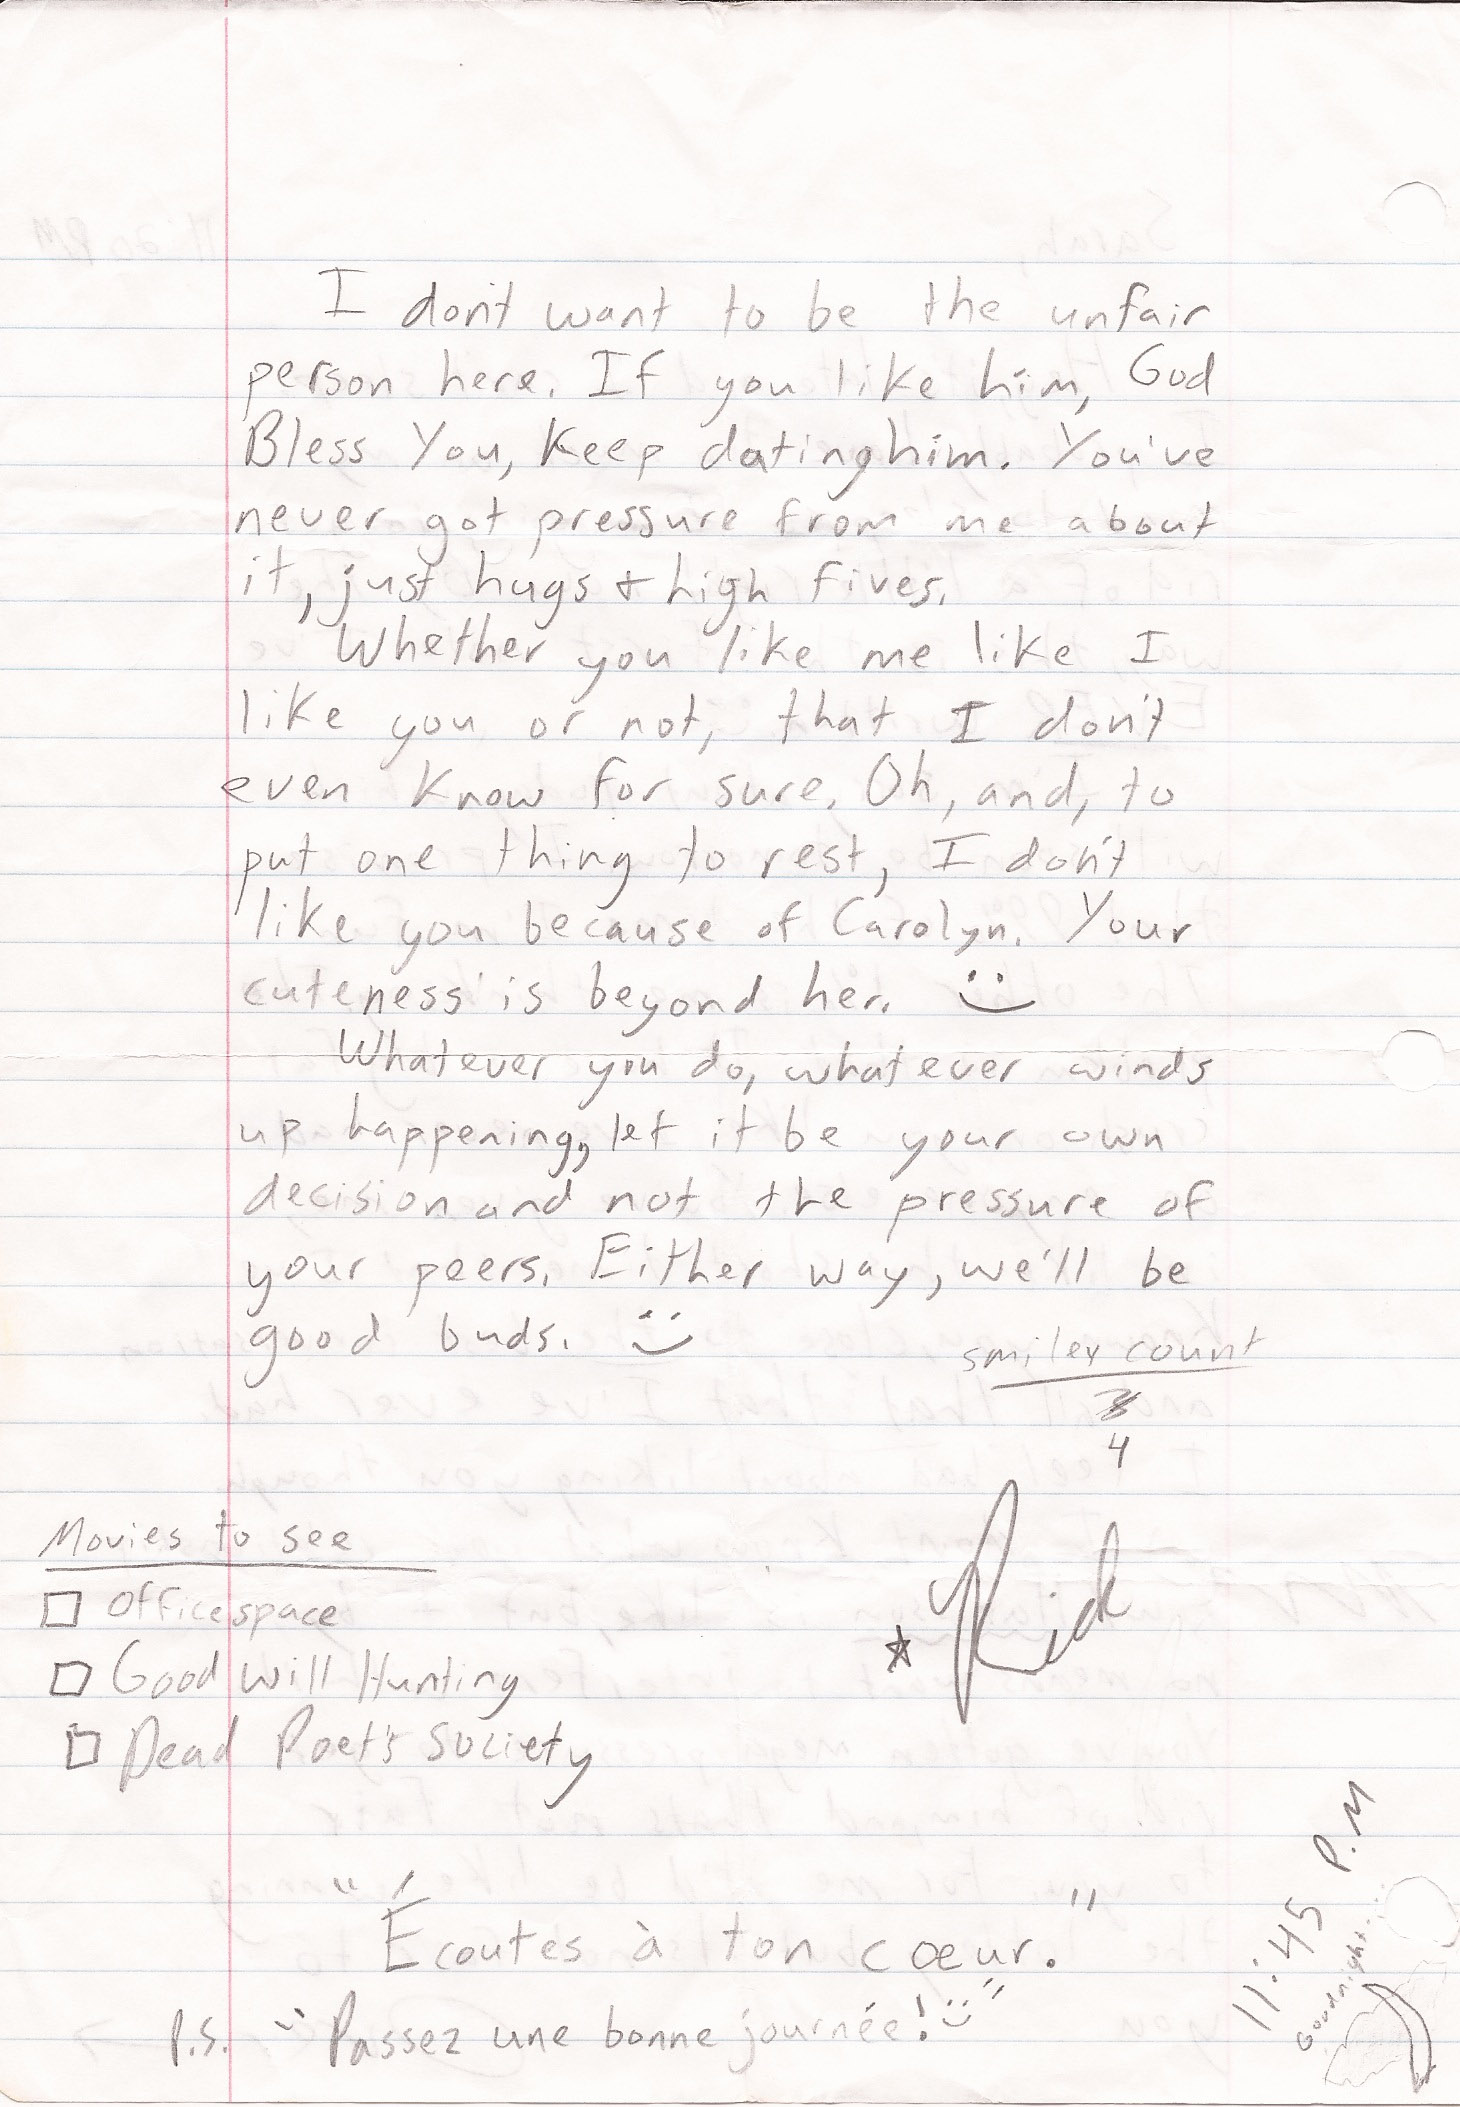 I don't want to be the unfair
person here. If you like him, God
Bless You, keep dating him. You've
never got pressure from me about
it, just hugs + high fives.
Whether you like me like I
like you or not, that I don't
even know for sure. Oh, and, to
put one thing to rest, I don't
like you because of Carolyn. Your
cuteness is beyond her. :)
Whatever you do, whatever winds
up happening, let it be your own
decision and not the pressure of
your peers. Either way, we'll be
good buds. :)
smiley count
4
Movies to see
☐ Office space
☐ Good Will Hunting
☐ Dead Poet's Society
* Rick
"Écoutes à ton cœur."
P.S. "Passez une bonne journée! :)"
11:45 P.M
Goodnight...